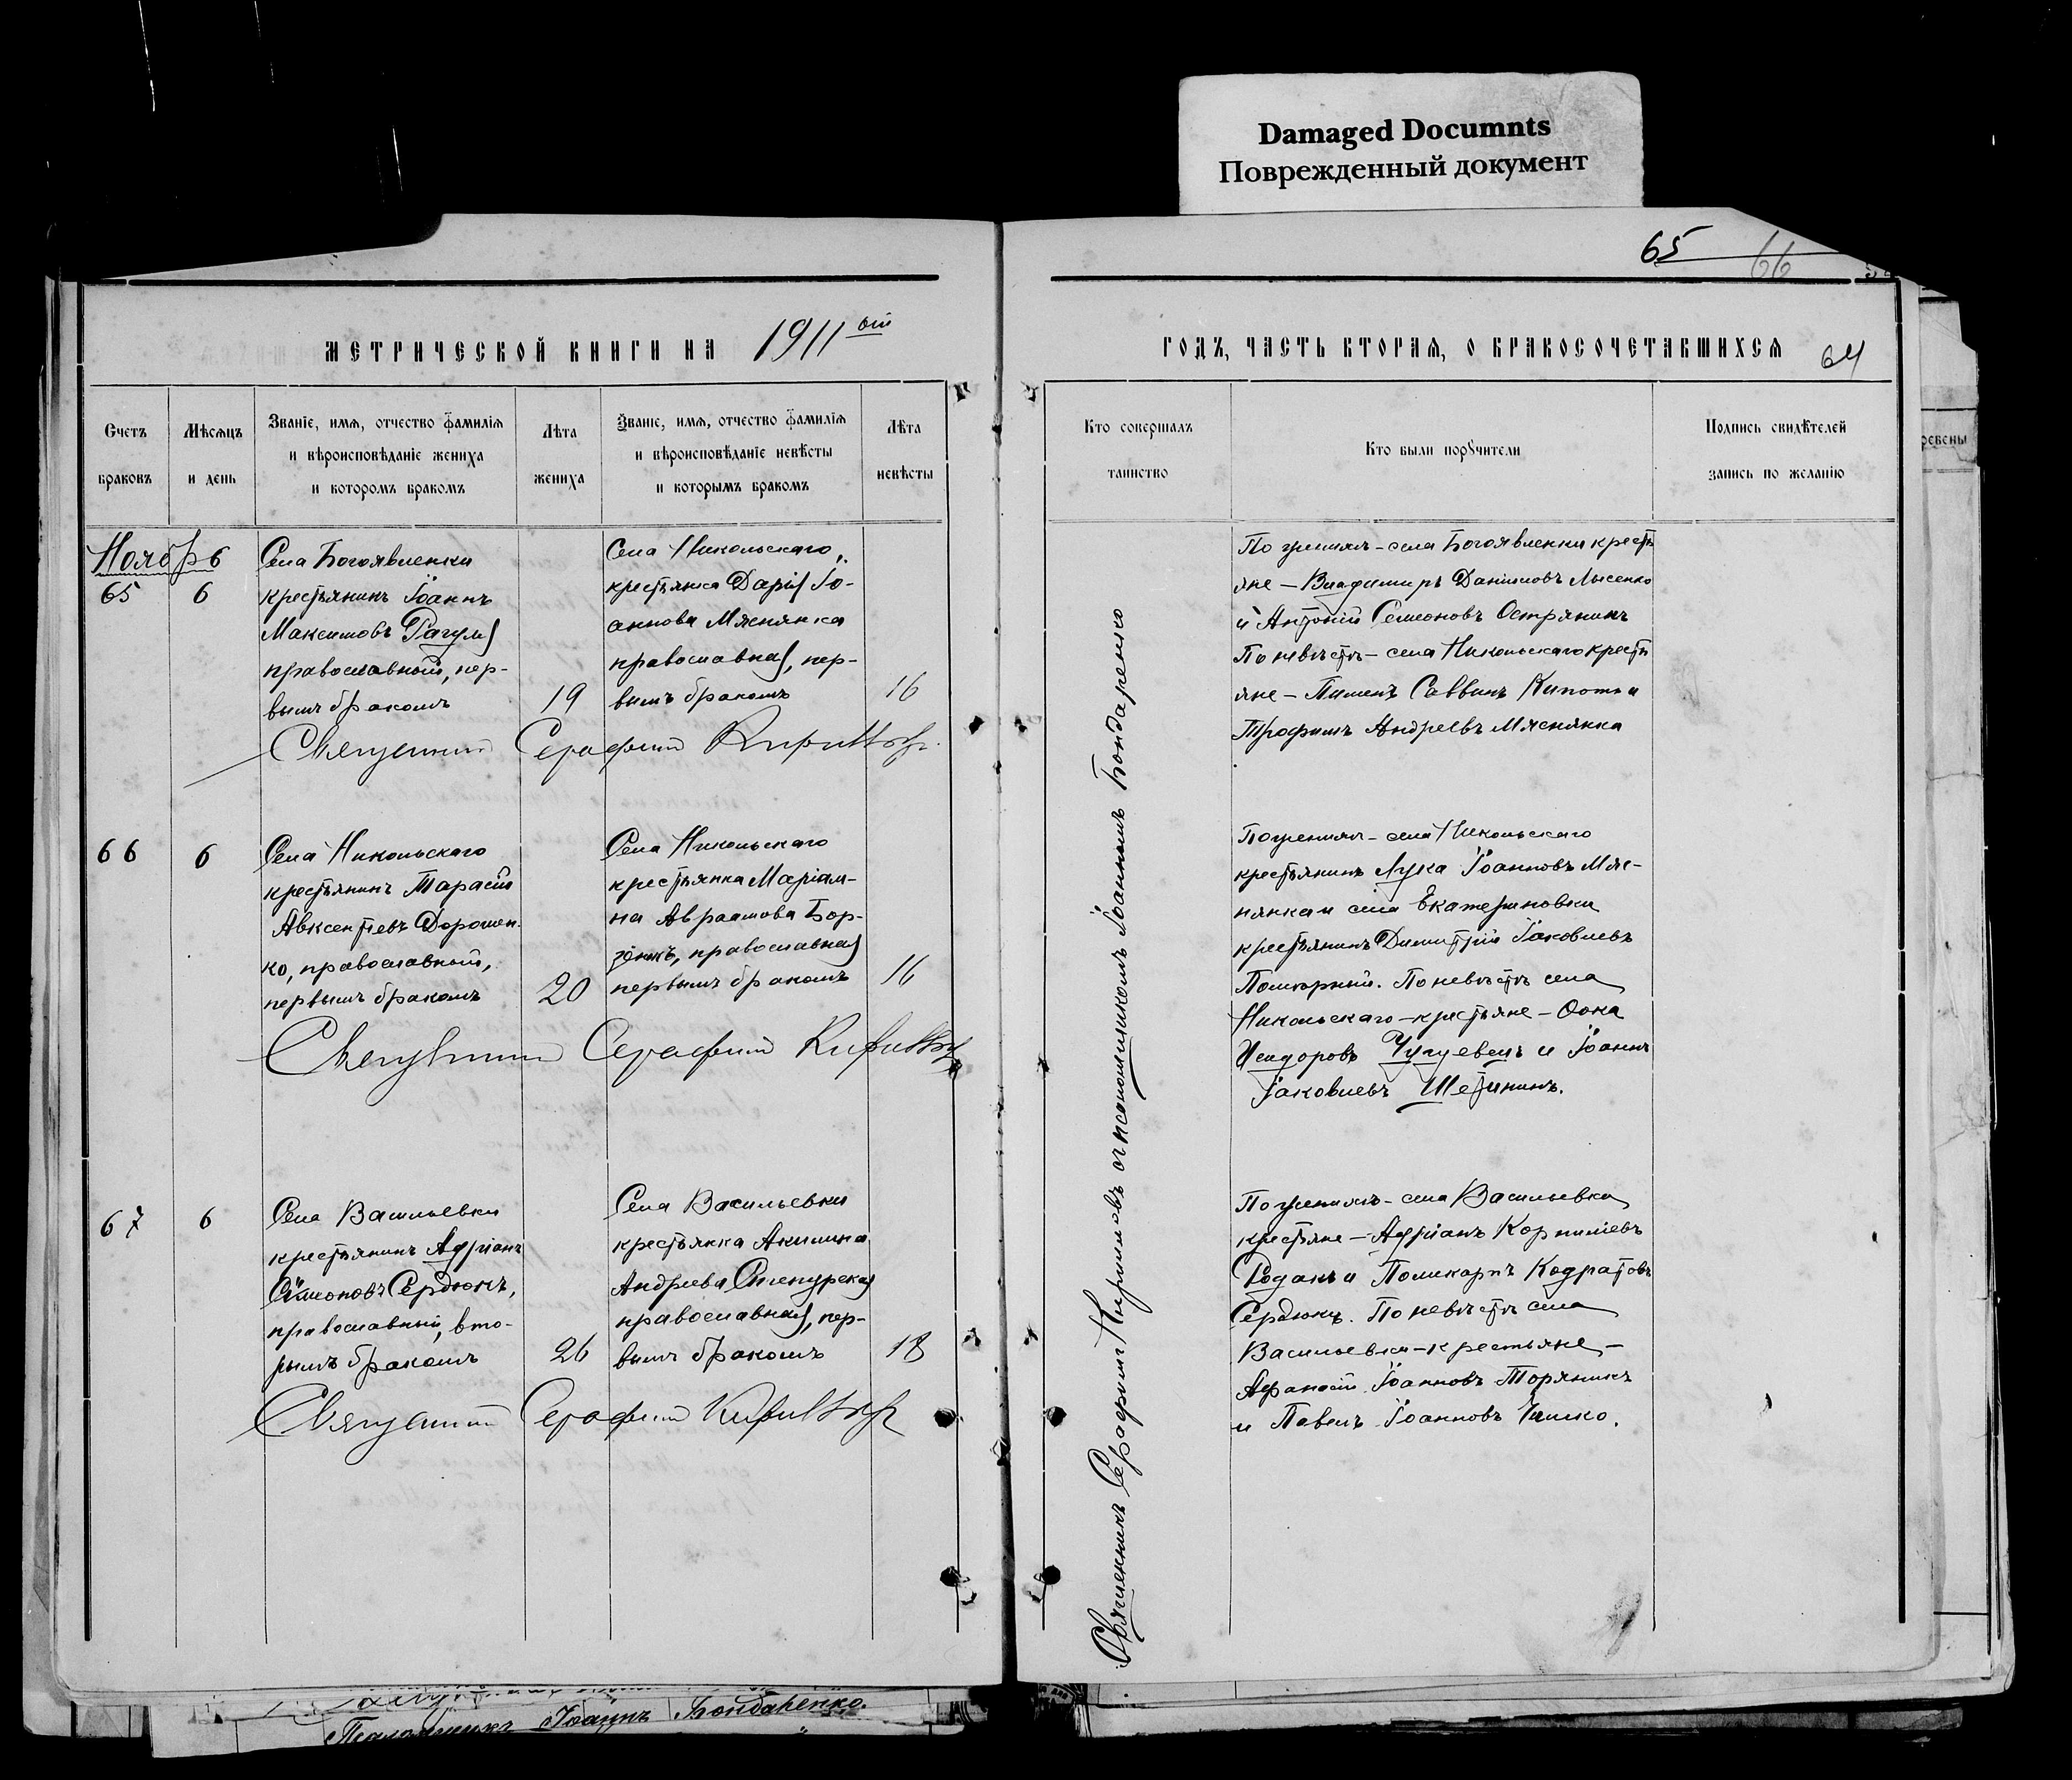 Damaged Documnts
Поврежденный документ
65
66
МЕТРИЧЕСКОЙ КНИГИ НА 1911ый
ГОДЪ, ЧАСТЬ ВТОРАЯ, О БРАКОСОЧЕТАВШИХСЯ
64
Счетъ
браковъ
Мѣсяцъ
и день
Званіе, имя, отчество фамилія
и вѣроисповѣданіе жениха
и которомъ бракомъ
Лѣта
жениха
Званіе, имя, отчество фамилія
и вѣроисповѣданіе невѣсты
и которымъ бракомъ
Лѣта
невѣсты
Кто совершалъ
таинство
Кто были порꙋчители
Подпись свидѣтелей
запись по желанію
Ноябрь
65
6
Села Богоявленки
крестьянинъ Іоаннъ
Максимовъ Рагуля
православный, пер-
вымъ бракомъ
19
Села Никольскаго,
крестьянка Дарія Іо-
аннова Мяснянка
православная, пер-
вымъ бракомъ
16
Священникъ Серафимъ Кирилловъ
По женихѣ – села Богоявленки кресть
яне – Владимиръ Даніиловъ Лысенко
и Антоній Семоновъ Острянинъ
По невѣстѣ – села Никольскаго кресть
яне – Пименъ Саввинъ
Трофимъ Андреевъ Мяснянка
66
6
Села Никольскаго
крестьянинъ Тарасій
Авксентіевъ Дорошен-
ко, православный,
первымъ бракомъ
20
Села Никольскаго
крестьянка Маріам-
на Авраамова Бор-
православная
первымъ бракомъ
16
Священникъ Серафимъ Кирилловъ
По женихѣ – села Никольскаго
крестьянинъ Лука Іоанновъ Мяс-
нянка и села Екатериновки
крестьянинъ Димитрій Іаковлевъ
По невѣстѣ села
Никольскаго – крестьяне – Ѳома
Исидоровъ Чугуевецъ и Іоаннъ
Іаковлевъ Шетининъ.
67
6
Села Васильевки
крестьянинъ Адріанъ
Симоновъ Сердюкъ,
православный, вто-
рымъ бракомъ
26
Села Васильевки
крестьянка Акилина
Андреева
православная, пер-
вымъ бракомъ
18
Священникъ Серафимъ Кирилловъ
По женихѣ – села Васильевки
крестьяне – Адріанъ Корниліевъ
Родакъ и Поликарпъ Кодратовъ
Сердюкъ. По невѣстѣ села
Васильевки – крестьяне –
Афанасій Іоанновъ Торяникъ
и Павелъ Іоанновъ
Священникъ Серафимъ Кирилловъ съ псаломщикомъ Іоанномъ Бондаренко
Псаломщикъ Іоаннъ Бондаренко.